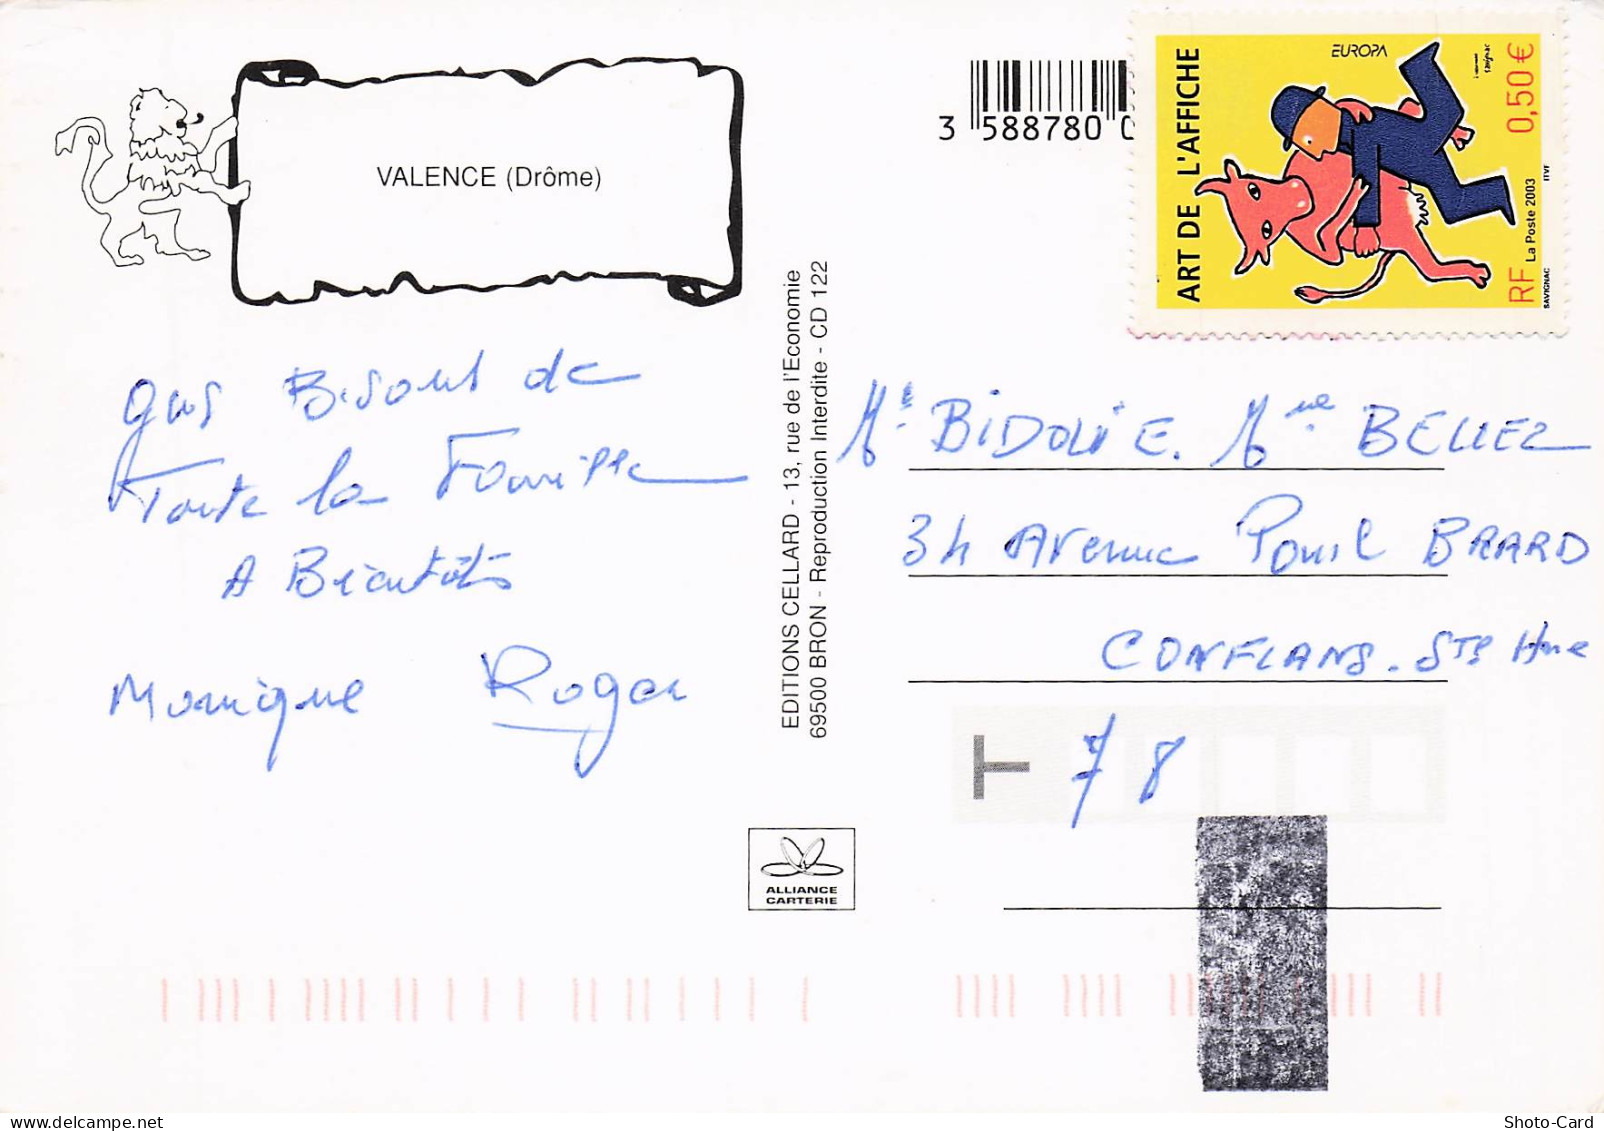 VALENCE (Drôme)
gros Bisous de
Toute la Famille
A Bientôt
Monique Roger
EDITIONS CELLARD - 13, rue de l'Economie
69500 BRON - Reproduction Interdite - CD 122
ALLIANCE
CARTERIE
3 588780 0
ART DE L'AFFICHE
EUROPA
savignac
RF 0,50 €
La Poste 2003
SAVIGNAC ITVF
Mr BIDOLIE. Mme BELLEZ
34 Avenue BRARD
CONFLANS. STE Hne
T 78
Shoto-Card